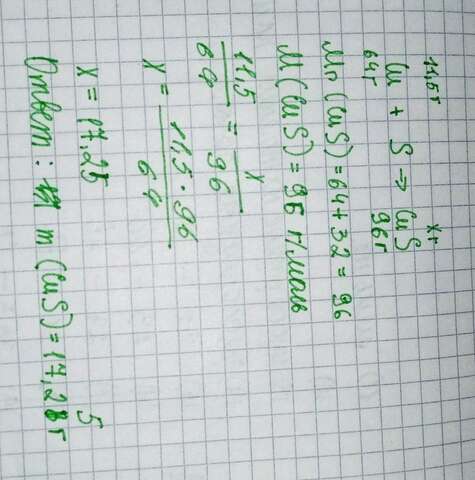 11,5г xг
Cu + S → CuS
64г 96г
Mr (CuS) = 64 + 32 = 96
M (CuS) = 96 г/моль
11,5/64 = x/96
x = 11,5 · 96/64
x = 17,25
Ответ: m (CuS) = 17,25г